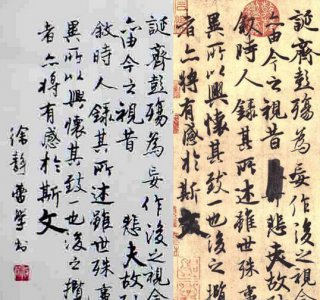 誕齊彭殤為妄作後之視今
亦由今之視昔悲夫故列
敘時人錄其所述雖世殊事
異所以興懷其致一也後之攬
者亦將有感於斯文
徐静蕾学书
誕齊彭殤為妄作後之視今
亦由今之視昔悲夫故列
敘時人錄其所述雖世殊事
異所以興懷其致一也後之攬
者亦將有感於斯文